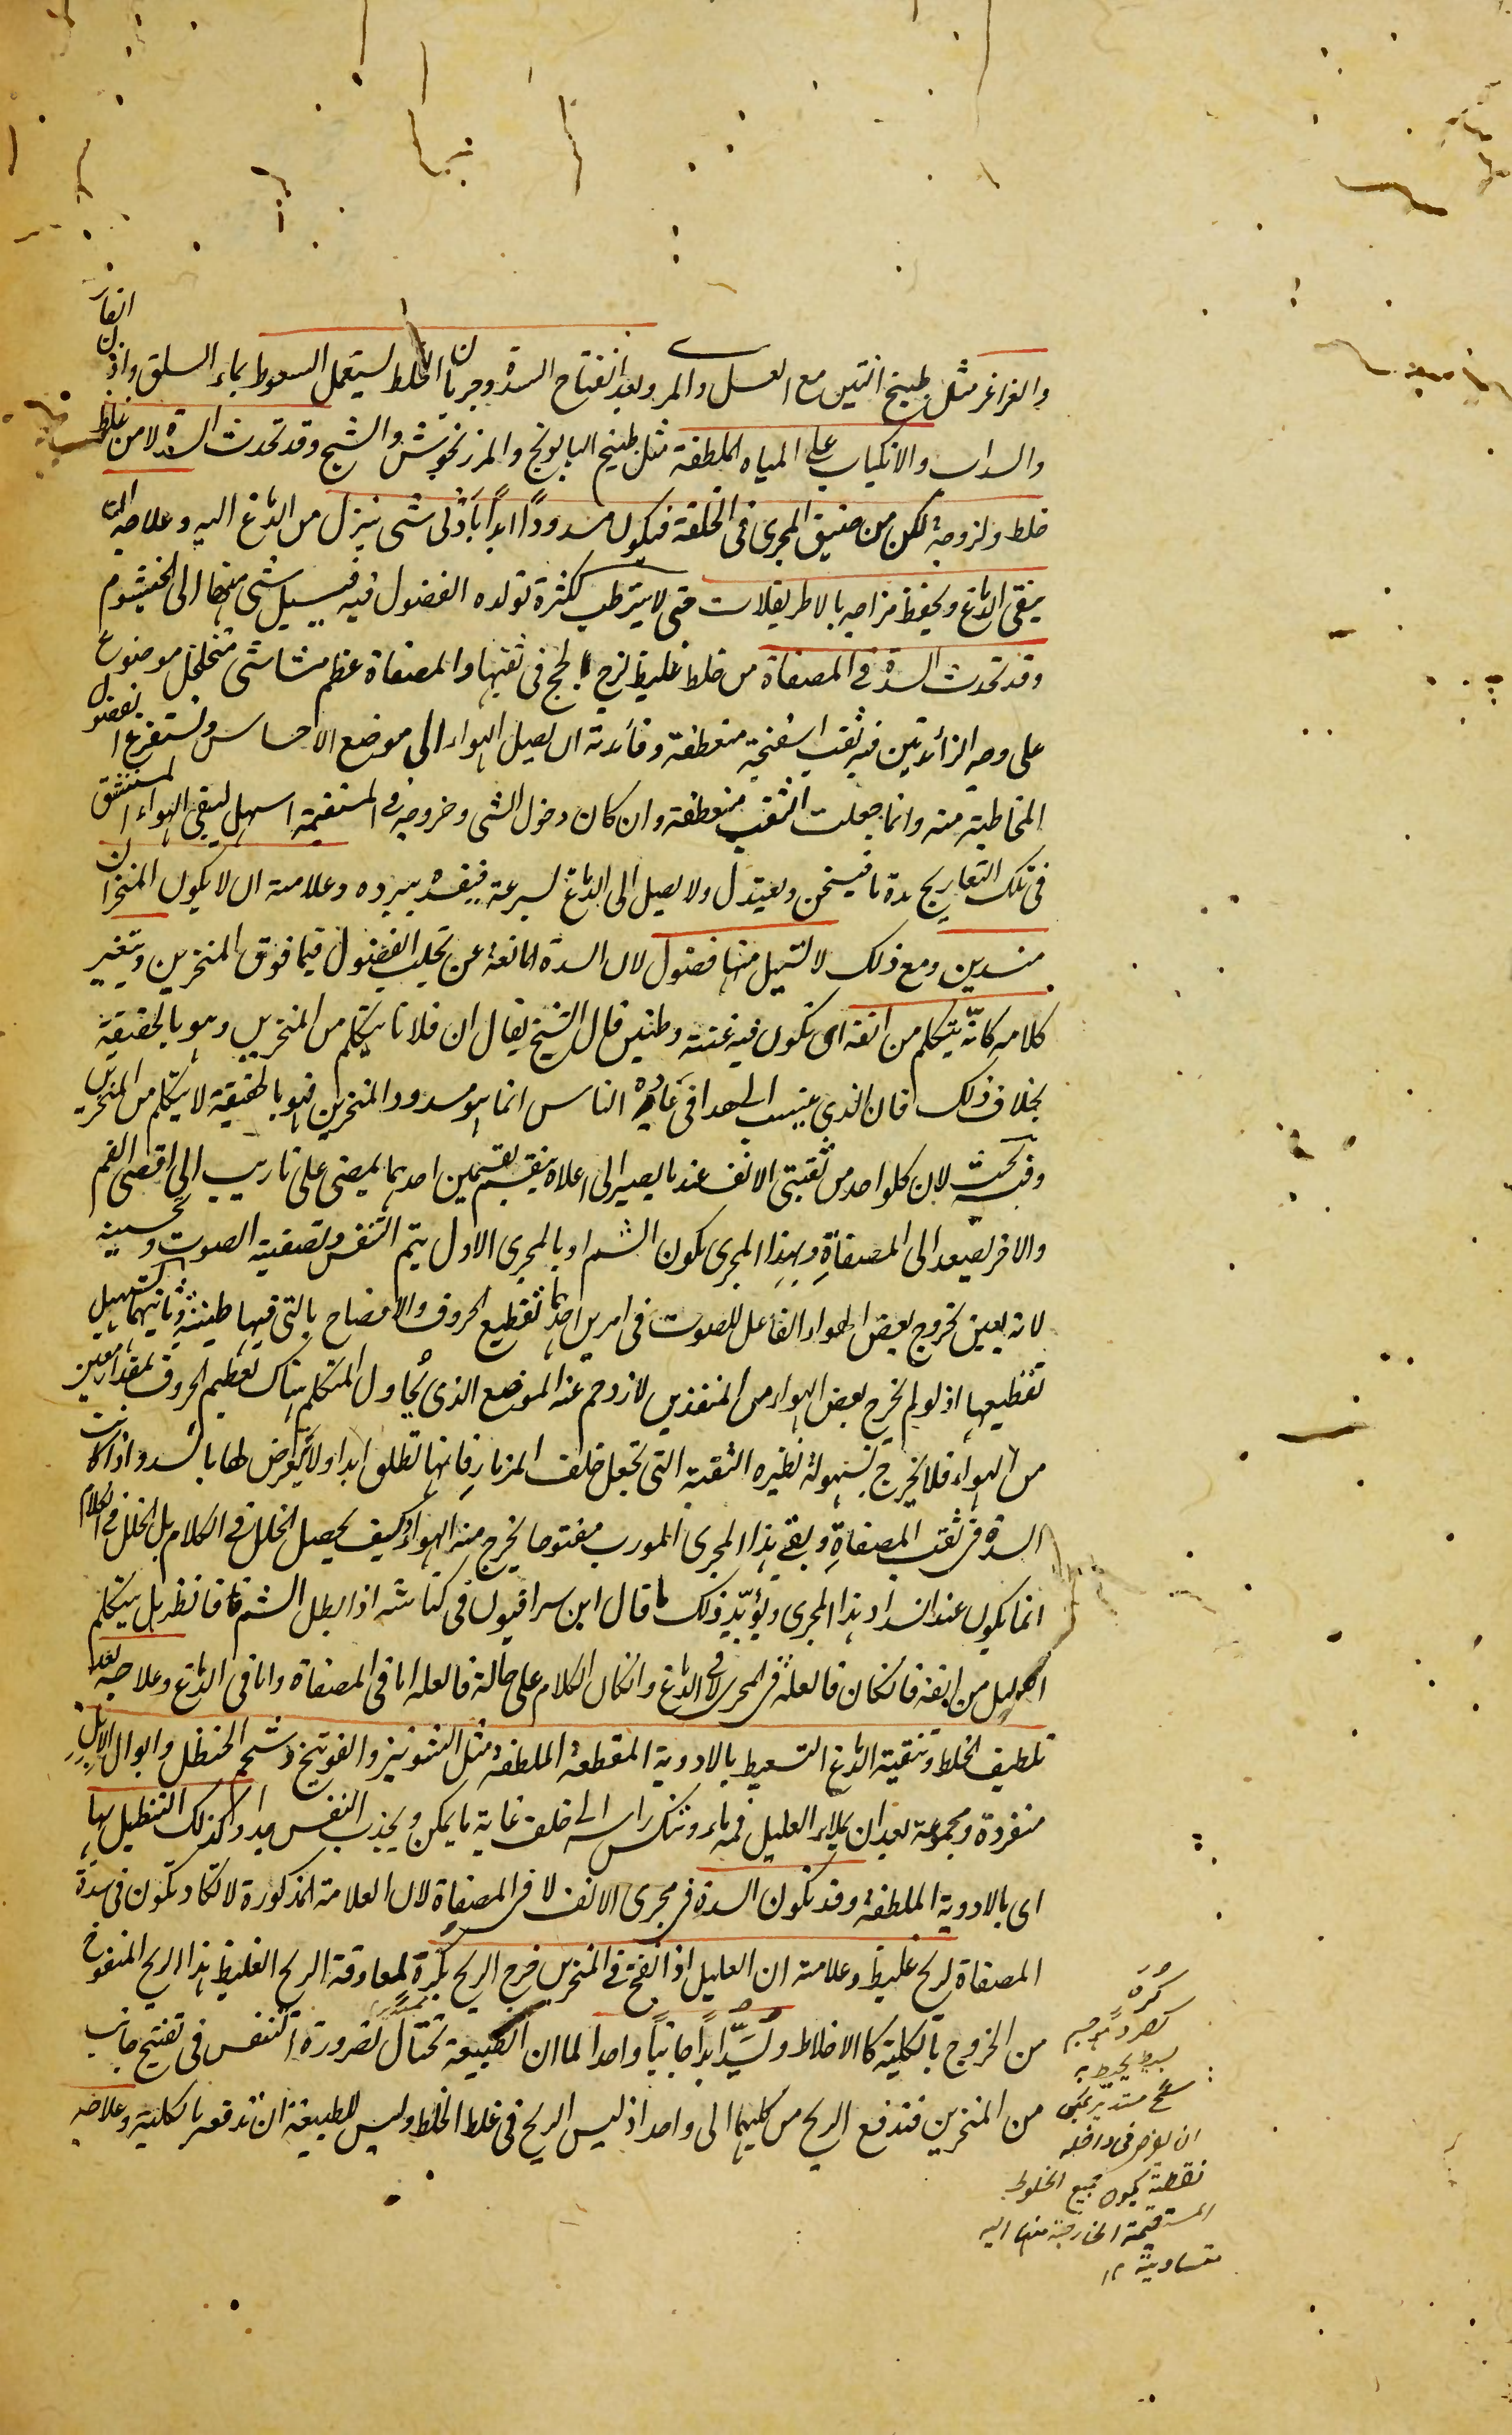 والغراغر مثل طبيخ التين مع العسل والمر وبعد انفتاح السدة وجريان الخلط يستعمل السعوط بماء السلق واذان الفار
والسداب والانكباب على المياه الملطفة مثل طبيخ البابونج والمرزنجوش والشيح وقد تحدث السدة لا من غلظ
خلط ولزوجة لكن من ضيق المجرى فى الخلقة فيكون مسدودًا ابدًا بادنى شى ينزل من الدماغ اليه وعلاجه ان
ينقى الدماغ ويحفظ مزاجه بالاطريفلات حتى لا يترطب لكثرة تولده الفضول فيه فيسيل شى منها الى الخيشوم
وقد تحدث السدة فى المصفاة من خلط غليظ لزج يلحج فى ثقبها والمصفاة عظم مشاشى متخلخل موضوع
على وجه الزائدتين فيه ثقب اسفنجية منعطفة وفائدته ان يصل الهواء الى موضع الاحساس ويستفرغ الفضول
المخاطية منه وانما جعلت الثقب منعطفة وان كان دخول الشى وخروجه فى المستقيمة اسهل ليبقى الهواء المستنشق
فى تلك التعاريج مدة ما فيسخن ويعتدل ولا يصل الى الدماغ بسرعة فيفسد ببرده وعلامته ان لا يكون المنخران
منسدين ومع ذلك لا تسيل منها فضول لان السدة المانعة عن تحلب الفضول فيما فوق المنخرين ويتغير
كلامه كانّه يتكلم من انفه اى تكون فيه غنة وطنين قال الشيخ يقال ان فلانا يتكلم من المنخرين وهو بالحقيقة
بخلاف ذلك فان الذى ينسب الى هذا فى عادة الناس انما هو مسدود المنخرين فهو بالحقيقة لا يتكلم من المنخرين
وفيه بحث لان كلواحد من ثقبتى الانف عند ما يصير الى اعلاه ينقسم بقسمين احدهما يمضى على تاريب الى اقصى الفم
والاخر يصعد الى المصفاة وبهذا المجرى يكون الشم اوبالمجرى الاول يتم التنفس وتصفية الصوت وتحسينه
لانه يعين بخروج بعض الهواء الفاعل للصوت فى امرين احدهما تقطيع الحروف والافصاح بالتى فيها طنينة وثانيهما تسهيل
تقطيعها اذ لو لم يخرج بعض الهواء من المنفذين لازدحم عند الموضع الذى يحاول المتكلم هناك تقطيع الحروف بمقدار معين
من الهواء فلا يخرج بسهولة نظيره الثقبة التى تجعل خلف المزمار فانها تطلق ابدا ولا يتعرض لها بالسد واذا كانت
السدة فى ثقب المصفاة وبقى هذا المجرى المورب مفتوحا يخرج منه الهواء وكيف يحصل الخلل فى الكلام بل الخلل فى الكلام
انما يكون عند انسداد هذا المجرى ويؤيّد ذلك ما قال ابن سرافيون فى كناشه اذا بطل الشم فانظر هل يتكلم
العليل من انفه فان كان فالعلة فى المجرى لا فى الدماغ وان كان الكلام على حاله فالعله اما فى المصفاة واما فى الدماغ وعلاجه بعد
تلطيف الخلط وتنقية الدماغ التسعيط بالادوية المقطعة الملطفة مثل الشونيز والفوتنج وشحم الحنظل وابوال الابل
منفردة ومجموعة بعد ان يملاء العليل فمه ماء وتنكس راسه الى خلف غاية ما يمكن ويجذب النفس جدا وكذلك التنطيل بها
اى بالادوية الملطفة وقد تكون السدة فى مجرى الانف لا فى المصفاة لان العلامة المذكورة لا تكاد تكون فى سدّة
المصفاة لريح غليظ وعلامته ان العليل اذا انفخ فى المنخرين خرج الريح بكزة لمعاوقة الريح الغليظ هذا الريح المنفوخ
من الخروج بالكلية كالاخلاط ويسدّ ابدًا جانبًا واحدا لما ان الطبيعة تحتال لضرورة التنفس فى تفتيح جانب
من المنخرين فتدفع الريح من كليهما الى واحد اذ ليس الريح فى غلظ الخلط وليس للطبيعة ان تدفعه بالكلية وعلاجه
كره
جسم
بسيط يحيط به
سطح مستدير يمكن
ان يفرض فى داخله
نقطة يكون جميع الخطوط
المستقيمة الخارجة منها اليه
متساوية ١٢